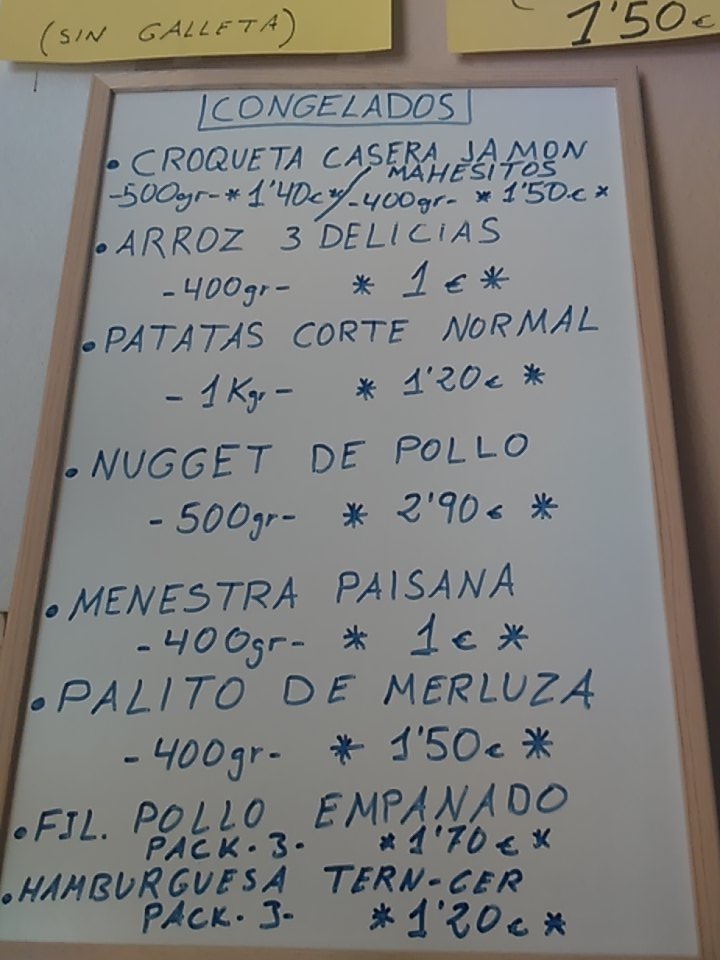 (SIN GALLETA)
1'50€
CONGELADOS
• CROQUETA CASERA JAMON
/ MAHESITOS
-500gr- * 1'40€ * / -400gr- * 1'50€ *
• ARROZ 3 DELICIAS
-400gr- * 1€ *
• PATATAS CORTE NORMAL
- 1Kgr- * 1'20€ *
• NUGGET DE POLLO
-500gr- * 2'90€ *
• MENESTRA PAISANA
-400gr- * 1€ *
• PALITO DE MERLUZA
-400gr- * 1'50€ *
• FIL. POLLO EMPANADO
PACK. 3- * 1'70€ *
• HAMBURGUESA TERN-CER
PACK. 3- * 1'20€ *